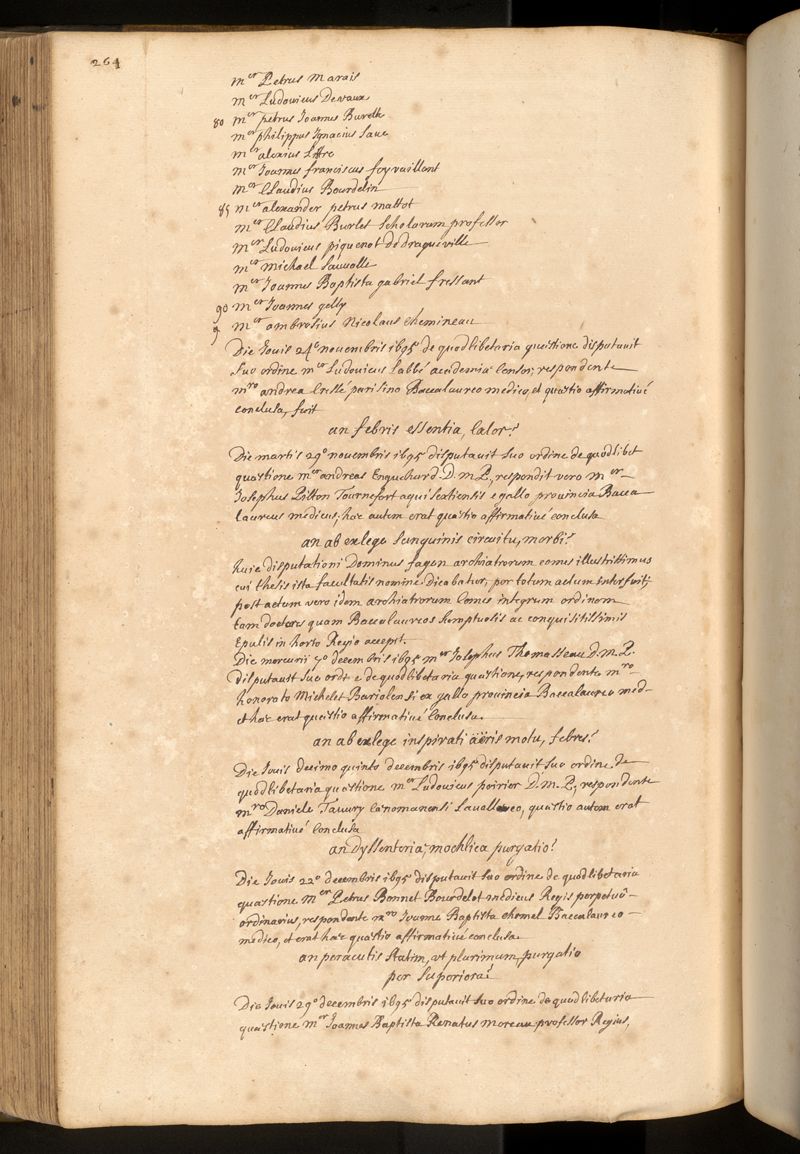 264
Mer Petrus Marais
Mer Ludovicus Devaux
80 Mer petrus Joannes Burette
Mer philippus Ignacius Saue
Mer alexius Littre
Mer Joannes franciscus foyvaillant
Mer Claudius Bourdelin
85 Mer alexander petrus mattot
Mer Claudius Burlet Scholarum professor
Mer Ludovicus piquenot de dragueville
Mer michael Sauvalle
Mer Joannes Baptista gabriel fressant
90 Mer Joannes gelly
9 Mer ambrosius Nicolaus Chemineau
Die Jouis 24e nouembris 1695 de quodlibetaria quæstione disputauit
suo ordine mer Ludouicus Labbé academiæ Censor, respondente
mro andrea Cressé parisino Baccalaureo medico, et quæstio affirmatiué
conclusa, fuit
an febris essentia, Calor?
Die martis 29o nouembris 1695 disputauit suo ordine de quodlibet
quæstione mer andreas Enguehard D. m. P., respondit vero mer
Josephus Pitton Tournefort aquisextiensis e gallo prouincia Bacca
laureus medicus, hæc autem erat quæstio affirmatiué conclusa
an ab exlege Sanguinis circuitu, morbi?
huic disputationi Dominus fagon archiatrorum comes illustrissimus
cui thesis ista facultatis nomine dicabatur, per totum actum interfuit;
post actum vero idem archiatrorum Comes integrum ordinem
tam doctores quam Baccalaureos Sumptuosis ac conquisitissimis
Epulis in horto Regio accepit.
Die mercurii 7o decembris 1695 mer Josephus Thomasseau D. m. P.
disputauit suo ordi e de quodlibetaria quæstione, respondente mro
honorato Michelet Bariolensi ex gallo prouincia Baccalaureo med
et hæc erat quæstio affirmatiué Conclusa.
an ab exlege inspirati aëris motu, febres?
Die Jouis decimo quinto decembris 1695 disputauit suo ordine de
quodlibetaria quæstione mer Ludouicus poirier D. m. P., respondente
mro Daniele Tauury Cænomanensi Lauallæo, quæstio autem erat
affirmatiué Conclusa
an Dyssenteriæ, mochlica purgatio?
Die Jouis 22o decembris 1695 disputauit suo ordine de quodlibetaria
quæstione Mer Petrus Bonnet Bourdelot medicus Regis perpetuô
ordinarius, respondente mro Joanne Baptista Chomel Baccalaureo
medico, et erat hæc quæstio affirmatiué conclusa
an peracutis statim, vt plurimum, purgatio
per superiora?
Die Jouis 29o decembris 1695 disputauit suo ordine de quodlibetaria
quæstione mer Joannes Baptista Renatus moreau professor Regius,